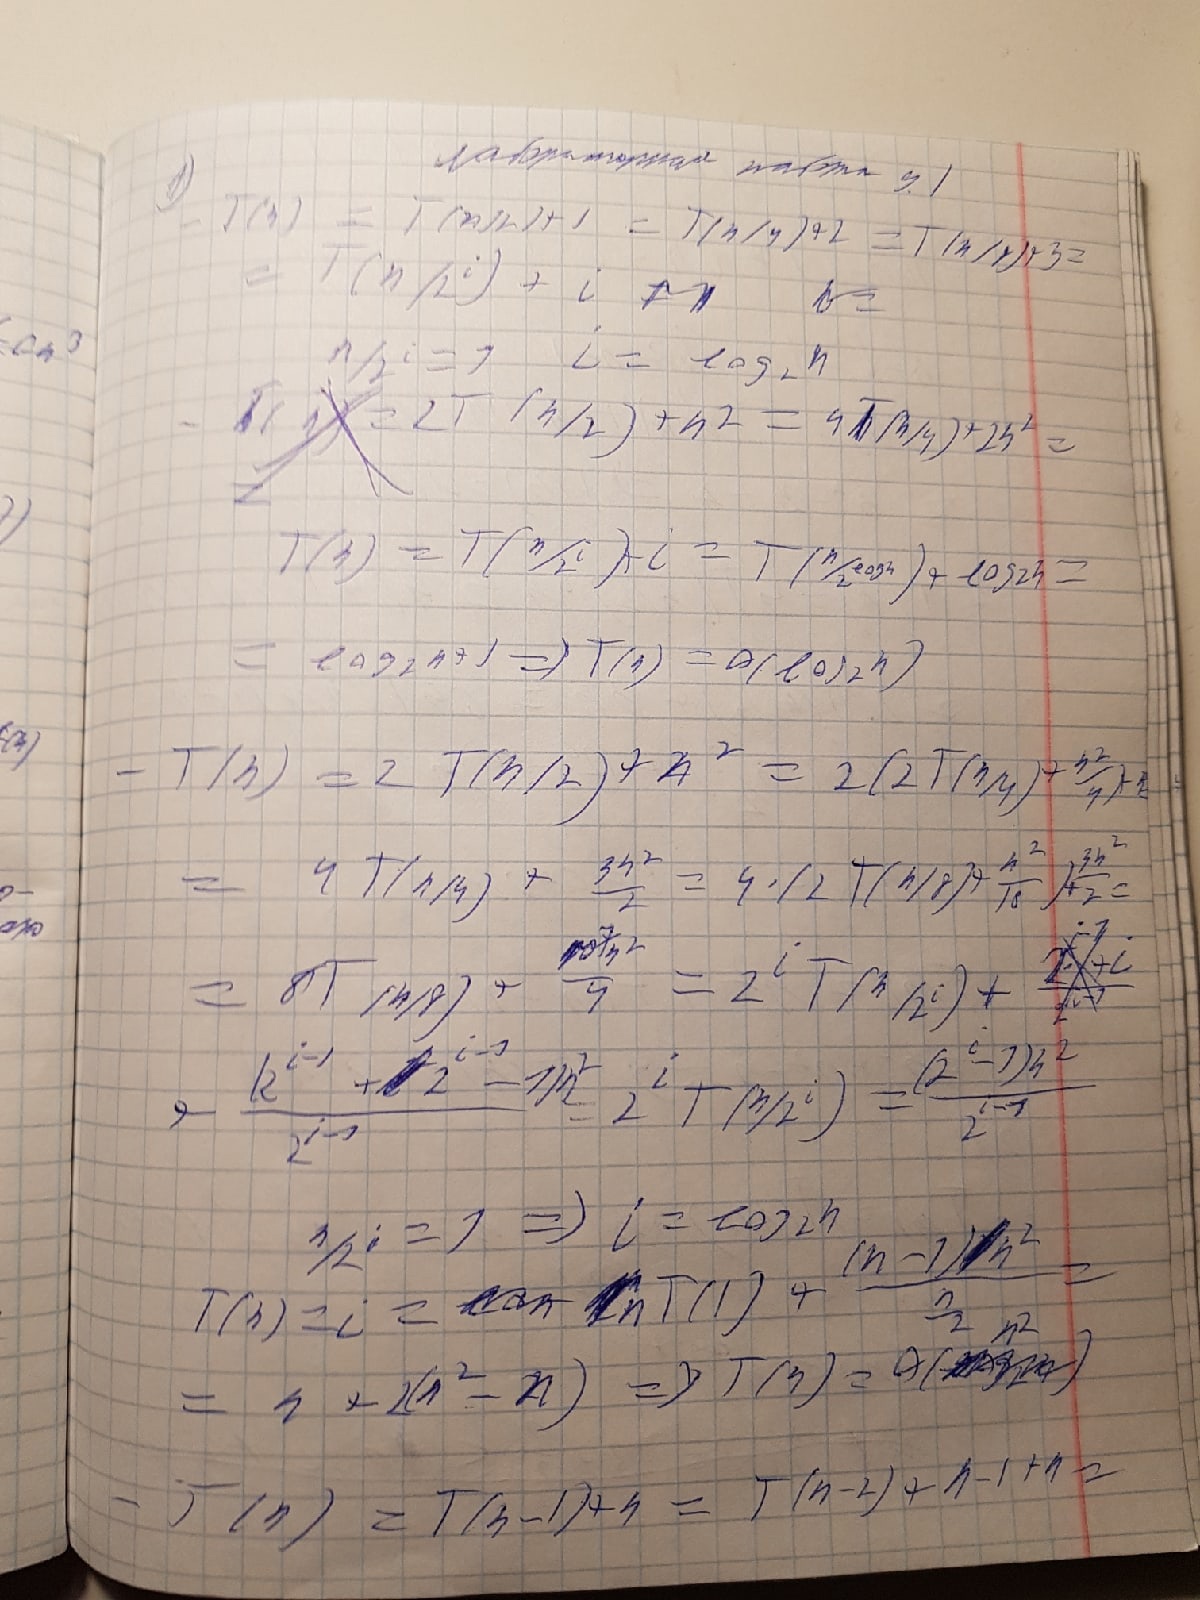 Лабораторная работа ч.1
1)
- T(n) = T(n/2)+1 = T(n/4)+2 = T(n/8)+3 =
= T(n/2^i) + i
n/2^i = 1 i = log₂n
= 2T(n/2)+n² = 4T(n/4)+2n² =
=
T(n) = T(n/2^i)+i = T(n/2^logn)+log₂n =
= log₂n+1 => T(n) = O(log₂n)
- T(n) = 2T(n/2)+n² = 2(2T(n/4)+n²/4)+n
= 4T(n/4) + 3n²/2 = 4·(2T(n/8)+n²/16)+3n²/2 =
= 8T(n/8) + 7n²/4 = 2^i T(n/2^i) +
+ (2^(i-1) + 2^(i-1) - 1)n² / 2^(i-1) = 2^i T(n/2^i) = (2^i-1)n² / 2^(i-1)
n/2^i = 1 => i = log₂n
T(n) = i = nT(1) + (n-1)n² / (n/2) =
= n + 2(n² - n) => T(n) = O(n²)
- T(n) = T(n-1)+n = T(n-2)+n-1+n =